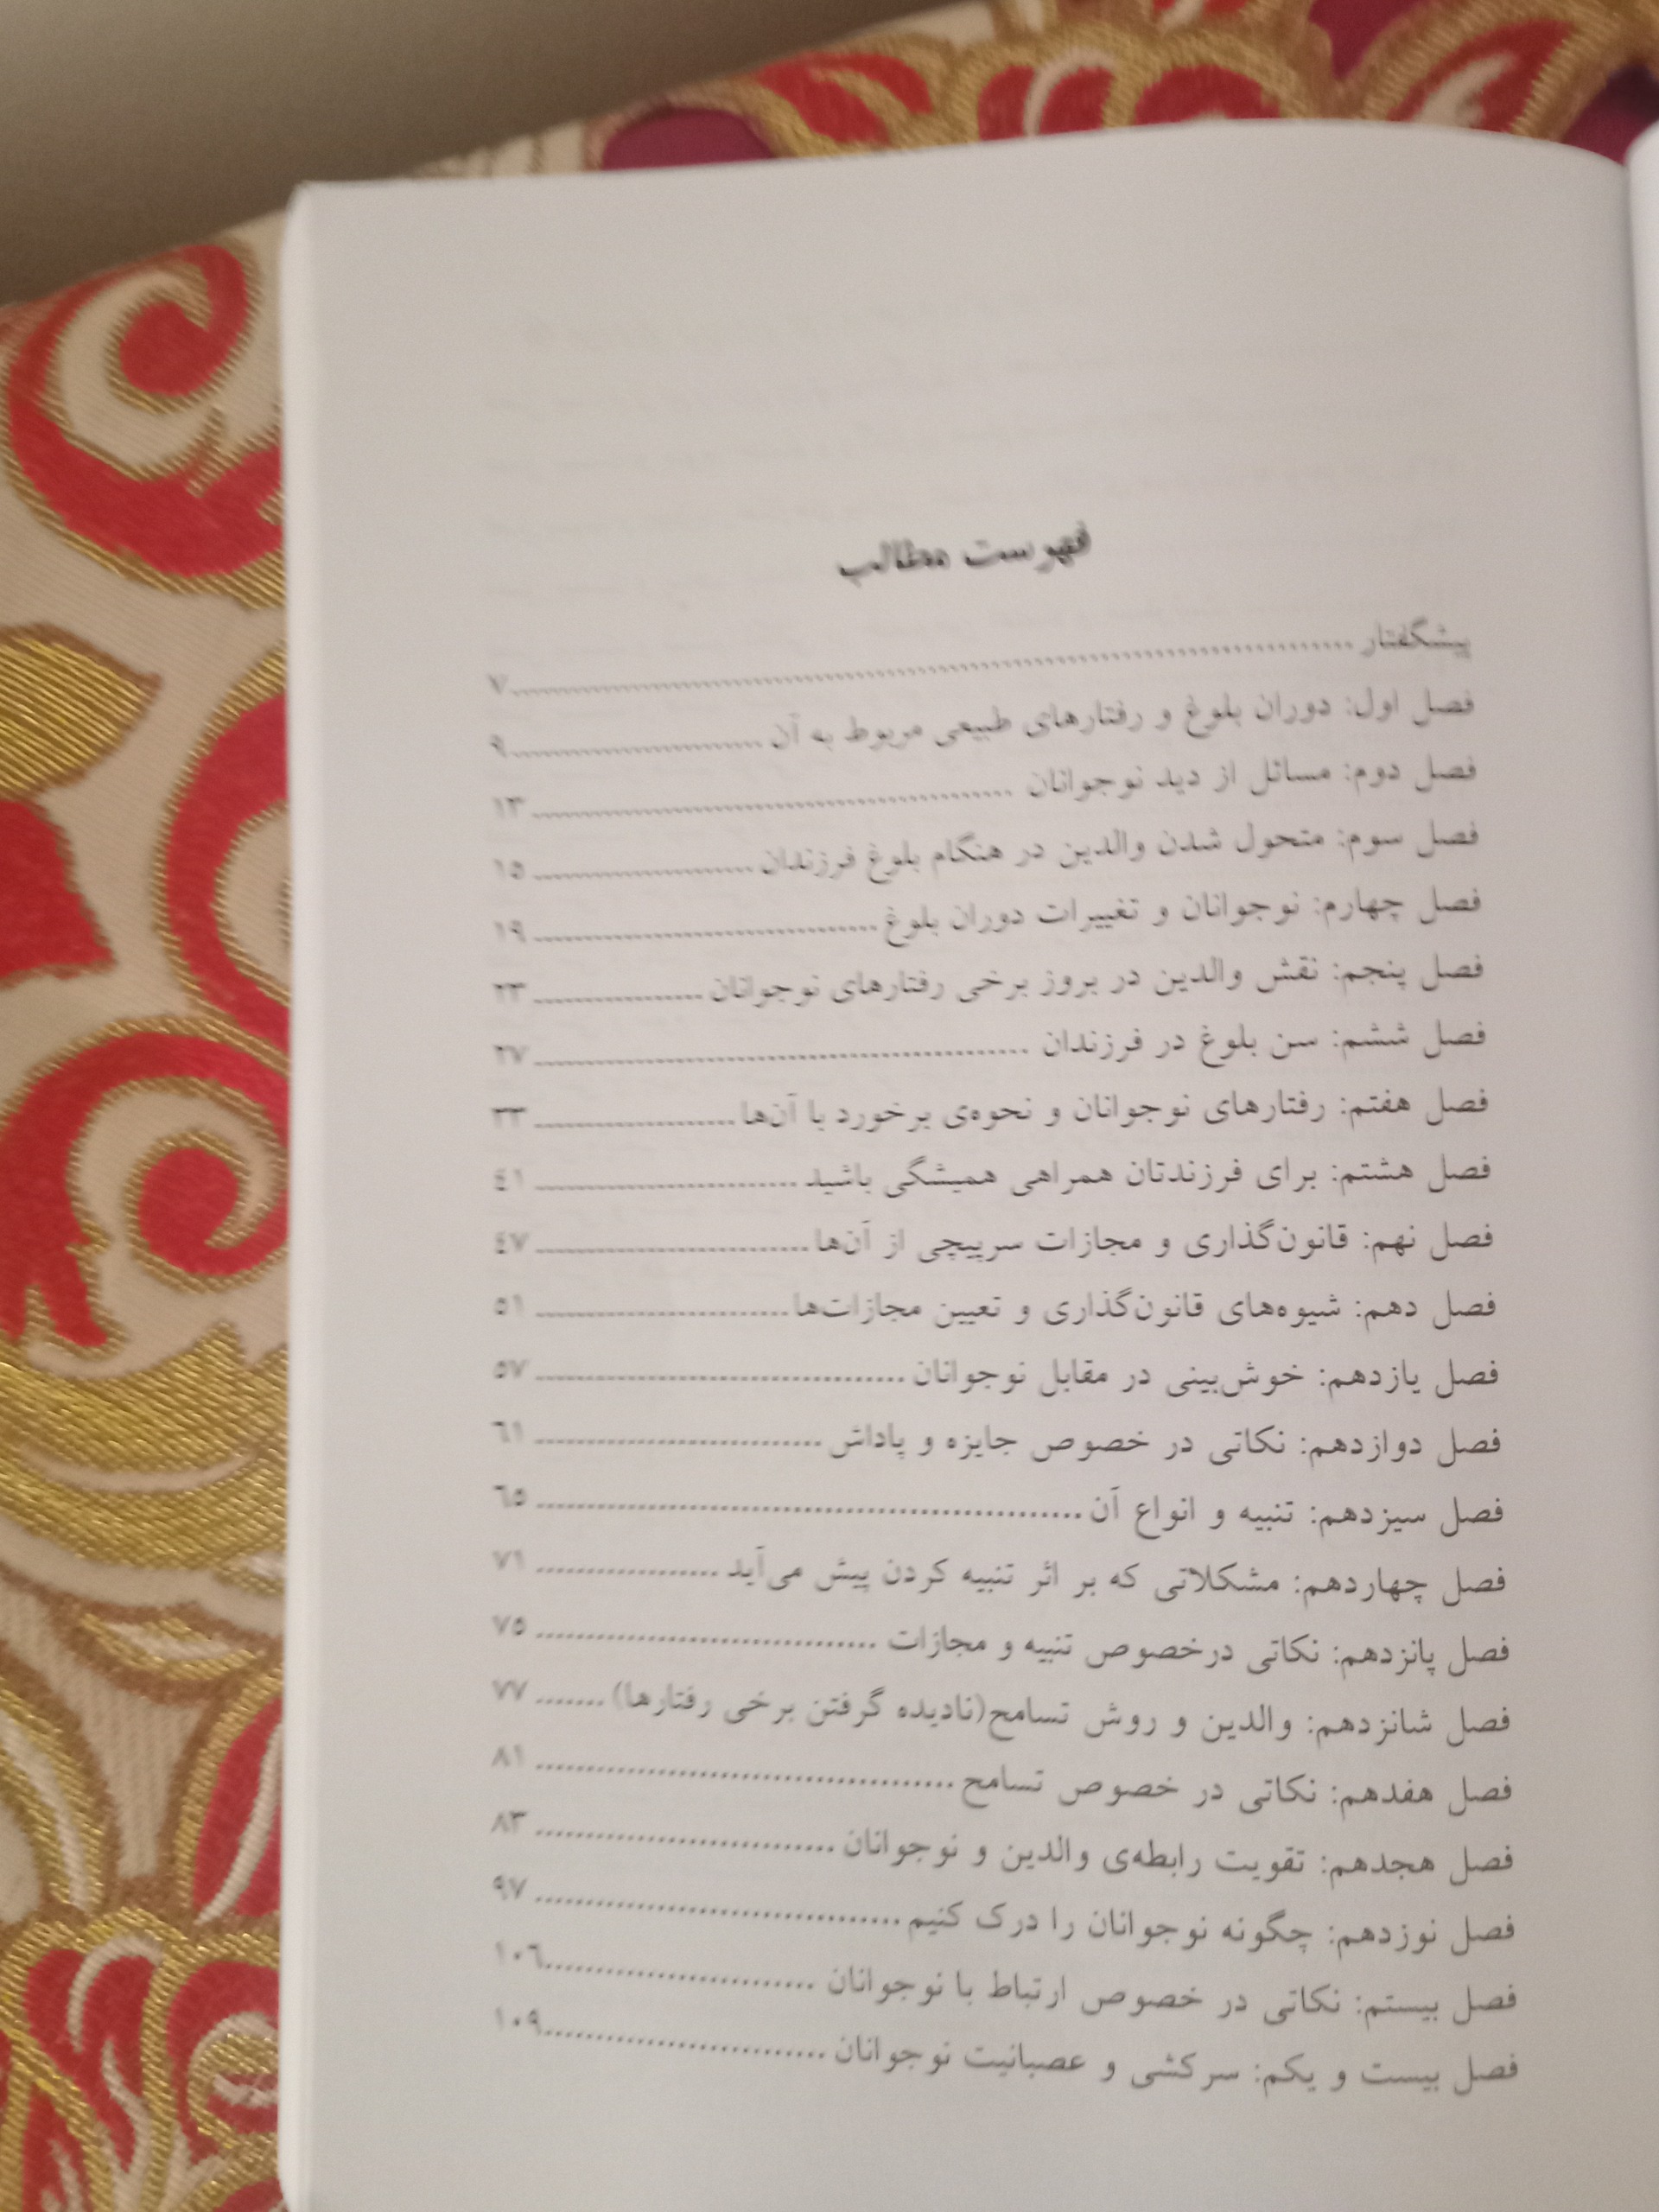 فهرست مطالب
پیشگفتار ........................................ ۷
فصل اول: دوران بلوغ و رفتارهای طبیعی مربوط به آن ........................................ ۹
فصل دوم: مسائل از دید نوجوانان ........................................ ۱۳
فصل سوم: متحول شدن والدین در هنگام بلوغ فرزندان ........................................ ۱۵
فصل چهارم: نوجوانان و تغییرات دوران بلوغ ........................................ ۱۹
فصل پنجم: نقش والدین در بروز برخی رفتارهای نوجوانان ........................................ ۲۳
فصل ششم: سن بلوغ در فرزندان ........................................ ۲۷
فصل هفتم: رفتارهای نوجوانان و نحوه‌ی برخورد با آن‌ها ........................................ ۳۳
فصل هشتم: برای فرزندتان همراهی همیشگی باشید ........................................ ٤۱
فصل نهم: قانون‌گذاری و مجازات سرپیچی از آن‌ها ........................................ ٤۷
فصل دهم: شیوه‌های قانون‌گذاری و تعیین مجازات‌ها ........................................ ۵۱
فصل یازدهم: خوش‌بینی در مقابل نوجوانان ........................................ ۵۷
فصل دوازدهم: نکاتی در خصوص جایزه و پاداش ........................................ ٦۱
فصل سیزدهم: تنبیه و انواع آن ........................................ ٦۵
فصل چهاردهم: مشکلاتی که بر اثر تنبیه کردن پیش می‌آید ........................................ ۷۱
فصل پانزدهم: نکاتی درخصوص تنبیه و مجازات ........................................ ۷۵
فصل شانزدهم: والدین و روش تسامح(نادیده گرفتن برخی رفتارها) ....... ۷۷
فصل هفدهم: نکاتی در خصوص تسامح ........................................ ۸۱
فصل هجدهم: تقویت رابطه‌ی والدین و نوجوانان ........................................ ۸۳
فصل نوزدهم: چگونه نوجوانان را درک کنیم ........................................ ۹۷
فصل بیستم: نکاتی در خصوص ارتباط با نوجوانان ........................................ ۱۰٦
فصل بیست و یکم: سرکشی و عصبانیت نوجوانان ........................................ ۱۰۹